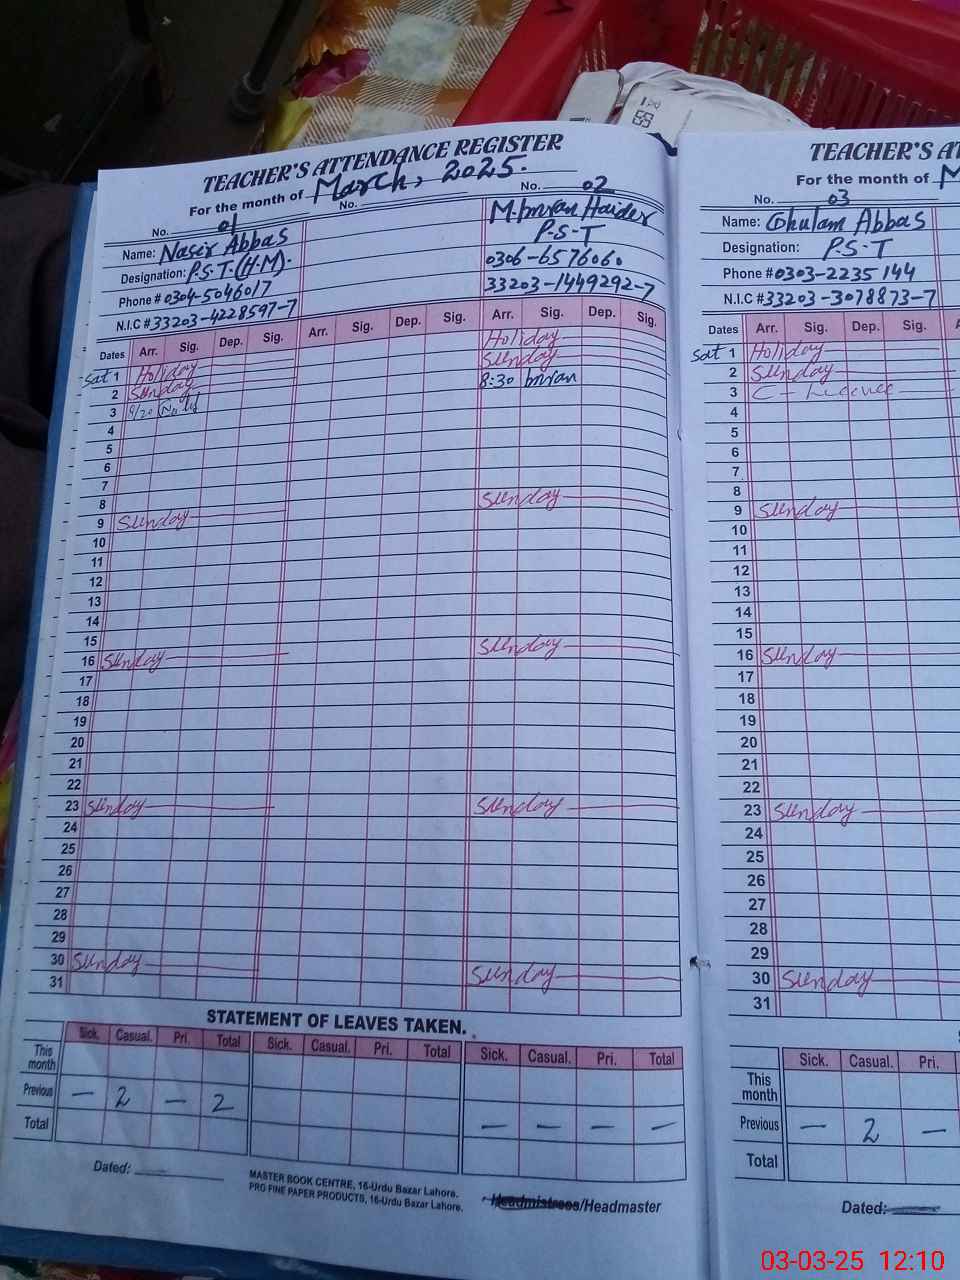 TEACHER'S ATTENDANCE REGISTER
For the month of March, 2025.
No. 01 No. No. 02
Name: Nasir Abbas M. Imran Haider
Designation: P.S.T. (H.M). P.S.T
Phone # 0304-5046017 0306-6576060
N.I.C # 33203-4228597-7 33203-1449292-7
Dates Arr. Sig. Dep. Sig. Arr. Sig. Dep. Sig. Arr. Sig. Dep. Sig.
Sat 1 Holiday Holiday
2 Sunday Sunday
3 8/20 8:30 Imran
4
5
6
7
8
9 Sunday Sunday
10
11
12
13
14
15
16 Sunday Sunday
17
18
19
20
21
22
23 Sunday Sunday
24
25
26
27
28
29
30 Sunday Sunday
31
STATEMENT OF LEAVES TAKEN.
Sick. Casual. Pri. Total Sick. Casual. Pri. Total Sick. Casual. Pri. Total
This month
Previous — 2 — 2 — — — —
Total
Dated:
MASTER BOOK CENTRE, 16-Urdu Bazar Lahore.
PRO FINE PAPER PRODUCTS, 16-Urdu Bazar Lahore.
Headmistress/Headmaster
TEACHER'S AT
For the month of M
No. 03
Name: Ghulam Abbas
Designation: P.S.T
Phone # 0303-2235144
N.I.C # 33203-3078873-7
Dates Arr. Sig. Dep. Sig. A
Sat 1 Holiday
2 Sunday
3 C-Leave
4
5
6
7
8
9 Sunday
10
11
12
13
14
15
16 Sunday
17
18
19
20
21
22
23 Sunday
24
25
26
27
28
29
30 Sunday
31
Sick. Casual. Pri.
This month
Previous — 2 —
Total
Dated:
03-03-25 12:10